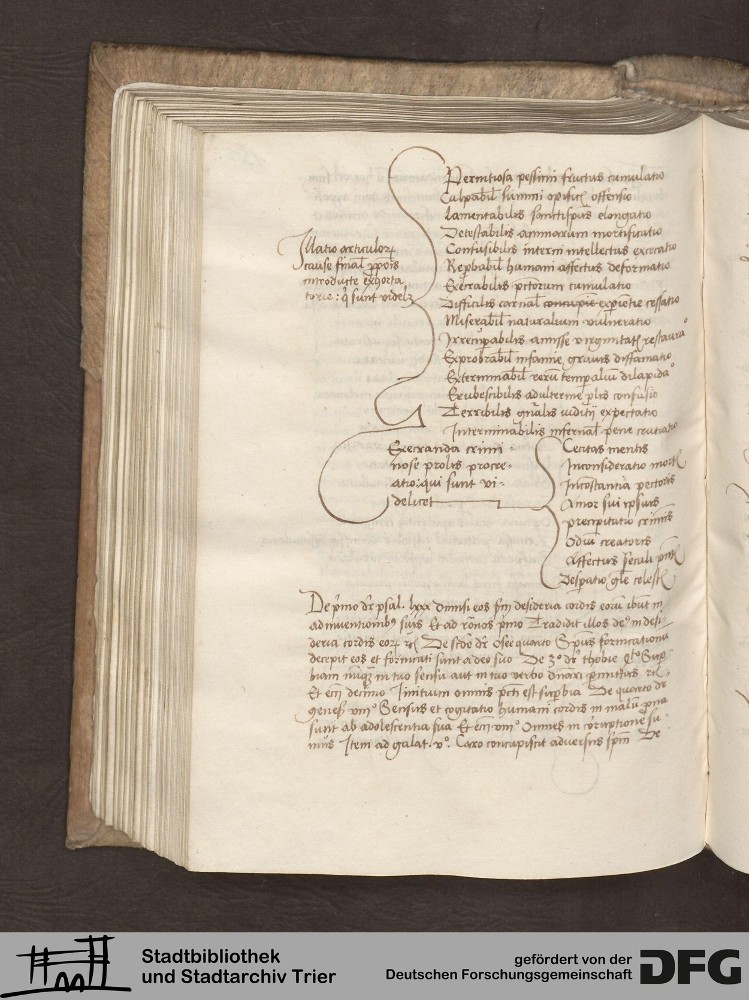 Pernitiosa pessimi fructus cumulatio
Culpabil summi opificis offensio
Lamentabilis sanctispūs elongatio
Detestabilis animarum mortificatio
Confusibilis interni intellectus excecatio
Repbabil humani affectus deformatio
Execrabilis pctorum cumulatio
Difficilis carnal concupie expientie cessatio
Miserabil naturalium vulneratio
Irrecupabilis amisse virginitatis restauratio
Exprobrabil infamie gravis diffamatio
Exterminabil rerū temporaliū dilapidatio
Erubescibilis adulterine plis confusio
Terribilis gnalis iudicij expectatio
Interminabilis infernal pene cruciatio
Illatio articulor
cause final
introducte exhorta
torie: q sunt videlz
Execranda crimi
nose prolis procre
atio: qui sunt vi
delicet
Cecitas mentis
Inconsideratio mortis
Incostantia pectoris
Amor sui ipsius
precipitatio criminis
Odiū creatoris
Affectus seculi
Desperatio glē celestis
De pmo dr psal. lxxx dimisi eos scdm desideria cordis eorū ibūt in
adinventionibus suis Et ad rōnos pmo Tradidit illos de' in desi
deria cordis eorz De scdo dr Osee quarto Spūs fornicationū
decepit eos et fornicati sunt a deo suo De 3o dr thobie Sup
biam nūqz in tuo sensu aut in tuo verbo dnari pmittas
Et decimo Initium omnis pcti est supbia De quarto dr
genes. viijo Sensus et cogitatio humani cordis in malū pna
sunt ab adolescentia sua Et viijo Omnes in corruptione su
mus Item ad galat. vo. Caro concupiscit adversus spm De
Stadtbibliothek
und Stadtarchiv Trier
gefördert von der
Deutschen Forschungsgemeinschaft
DFG